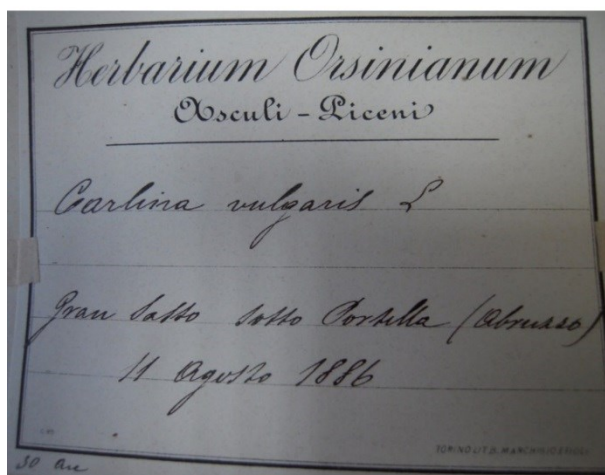 Herbarium Orsinianum
Asculi - Piceni
Carlina vulgaris L
Gran Sasso sotto Portella (Abruzzo)
11 Agosto 1886
TORINO LIT. D.
30